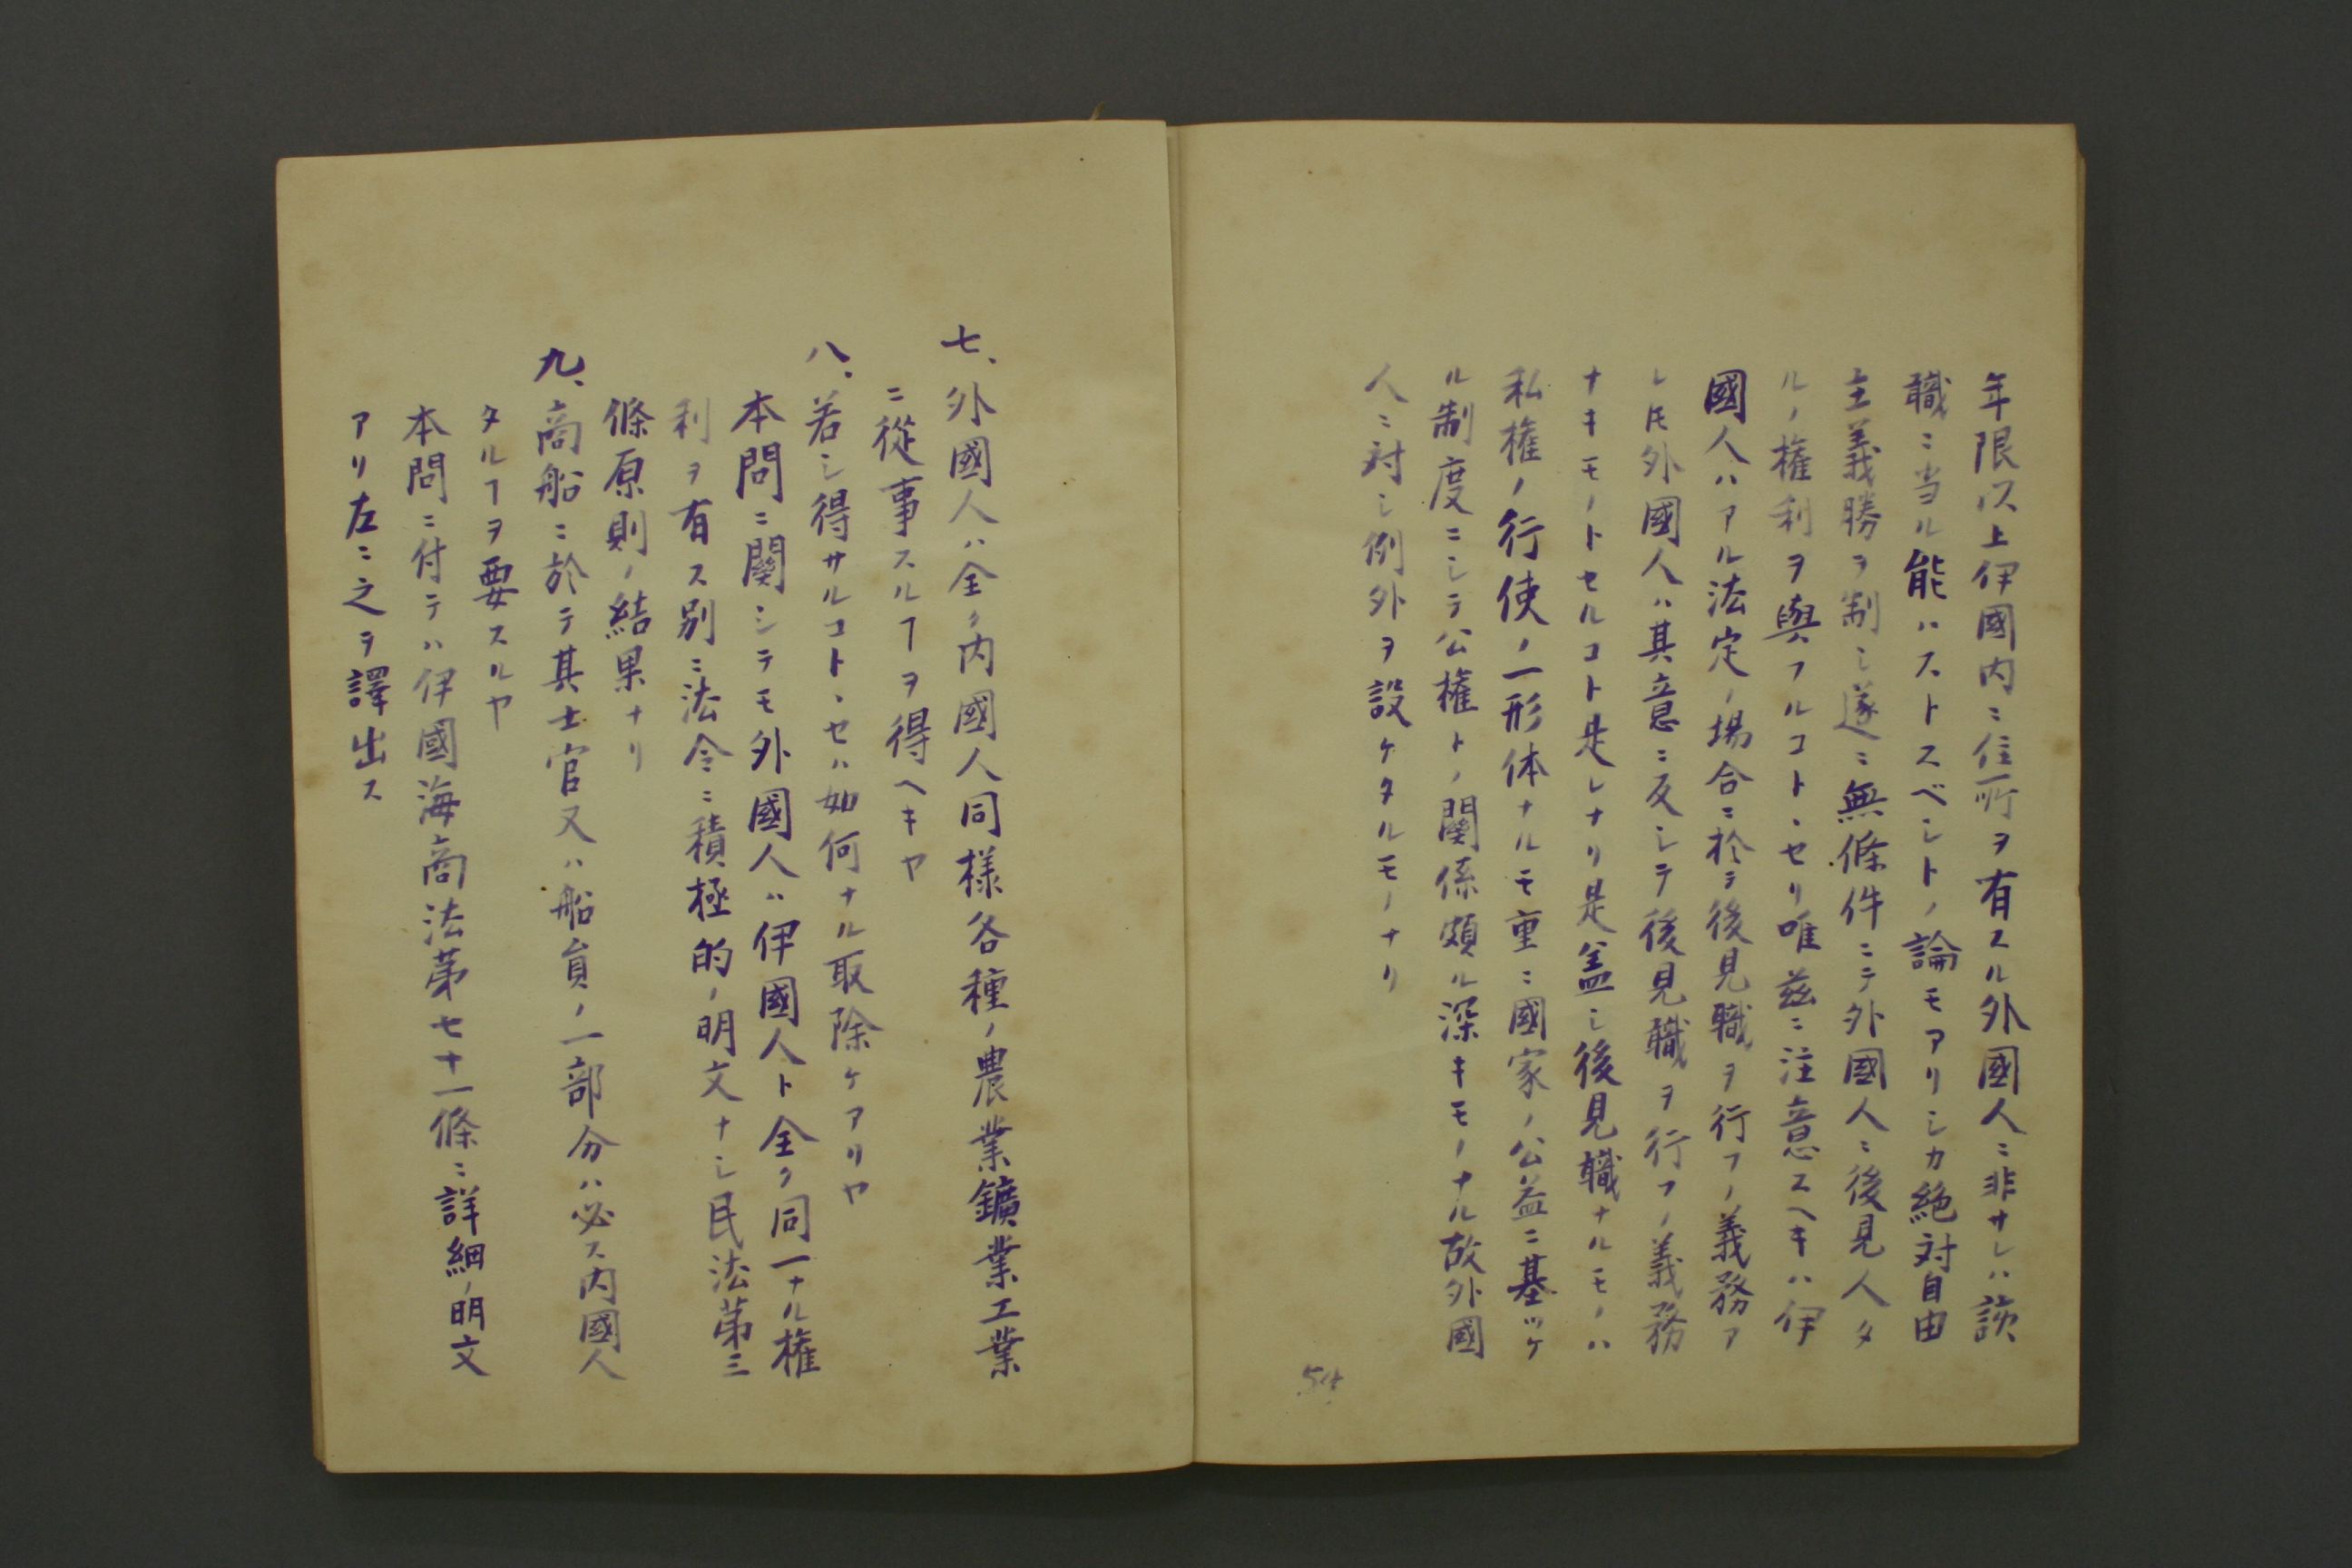 年限以上伊國内ニ住所ヲ有スル外國人ニ非サレハ該
職ニ当ル能ハストスベシトノ論モアリシカ絶対自由
主義勝ヲ制シ遂ニ無條件ニテ外國人ニ後見人タ
ルノ権利ヲ與フルコトヽセリ唯茲ニ注意スヘキハ伊
國人ハアル法定ノ場合ニ於テ後見職ヲ行フノ義務ア
レ𪜈外國人ハ其意ニ反シテ後見職ヲ行フノ義務
ナキモノトセルコト是レナリ是盖シ後見職ナルモノハ
私権ノ行使ノ一形体ナルモ重ニ國家ノ公益ニ基ツケ
ル制度ニシテ公権トノ關係頗ル深キモノナル故外國
人ニ対シ例外ヲ設ケタルモノナリ
54
七、外國人ハ全ク内國人同様各種ノ農業鑛業工業
ニ從事スルヿヲ得ヘキヤ
八、若シ得サルコトヽセハ如何ナル取除ケアリヤ
本問ニ關シテモ外國人ハ伊國人ト全ク同一ナル権
利ヲ有ス別ニ法令ニ積極的ノ明文ナシ民法第三
條原則ノ結果ナリ
九、商船ニ於テ其士官又ハ船員ノ一部分ハ必ス内國人
タルヿヲ要スルヤ
本問ニ付テハ伊國海商法第七十一條ニ詳細ノ明文
アリ左ニ之ヲ譯出ス